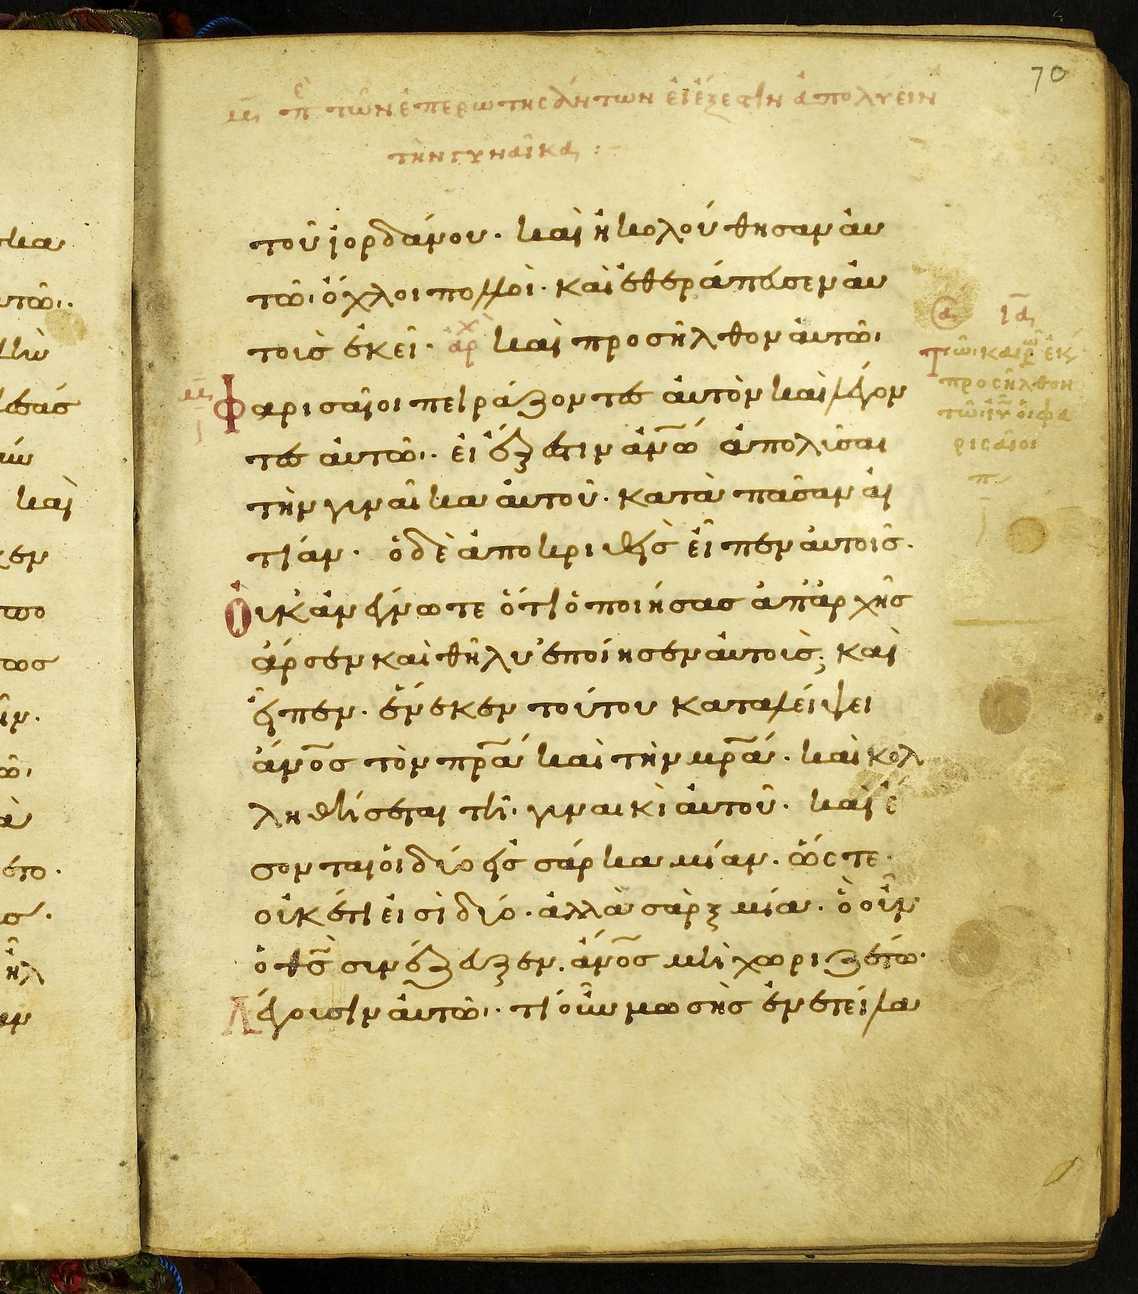 70
μ π τῶν ἐπερωτησάντων εἰ ἔξεστιν ἀπολύειν
τὴν γυναῖκα :
τοῦ ἰορδάνου· καὶ ἠκολούθησαν αυ
τῶ· ὄχλοι πολλοὶ· καὶ ἐθεράπευσεν αυ
τοὺς ἐκεῖ· αρχ καὶ προσῆλθον αὐτῶ·
Φαρισαῖοι πειράζοντες αὐτὸν καὶ λέγον
τες αὐτῶ· εἰ ἔξεστιν ἀνω ἀπολῦσαι
τὴν γυναῖκα αὐτοῦ· κατὰ πᾶσαν αἰ
τίαν· ὁ δὲ ἀποκριθεὶς εἶπεν αὐτοῖς·
Οὐκ ἀνέγνωτε ὅτι ὁ ποιήσας ἀπαρχῆς
ἄρσεν καὶ θῆλυ ἐποίησεν αὐτοὺς; καὶ
εἶπεν· ἕνεκεν τούτου καταλείψει
ἄνος τὸν πρα καὶ τὴν μρα· καὶ κολ
ληθήσεται τῆ γυναικὶ αὐτοῦ· καὶ ἔ
σονται οἱ δύο εἰς σάρκα μίαν· ὥστε
οὐκέτι εἰσὶ δύο· ἀλλὰ σὰρξ μία· ὁ οὖν
ὁ θς συνέζευξεν· ἄνος μὴ χωριζέτω·
Λέγουσιν αὐτῶ· τί οὖν μωσῆς ἐνετείλα
τῶ καιρῶ ἐκ
προσῆλθον
τῶ ιυ οἱ φα
ρισαῖοι
π